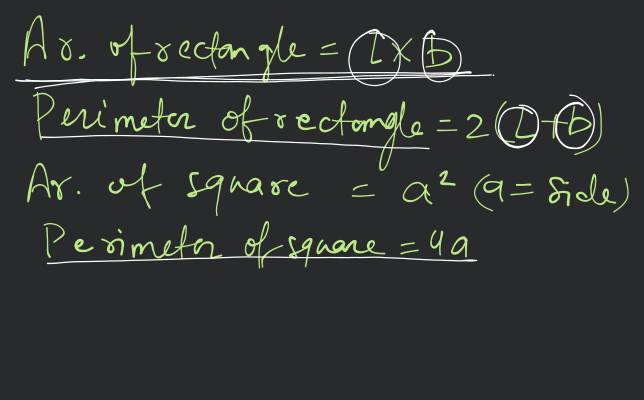 Ar. of rectangle = l × b
Perimeter of rectangle = 2(l+b)
Ar. of square = a² (a = side)
Perimeter of square = 4a